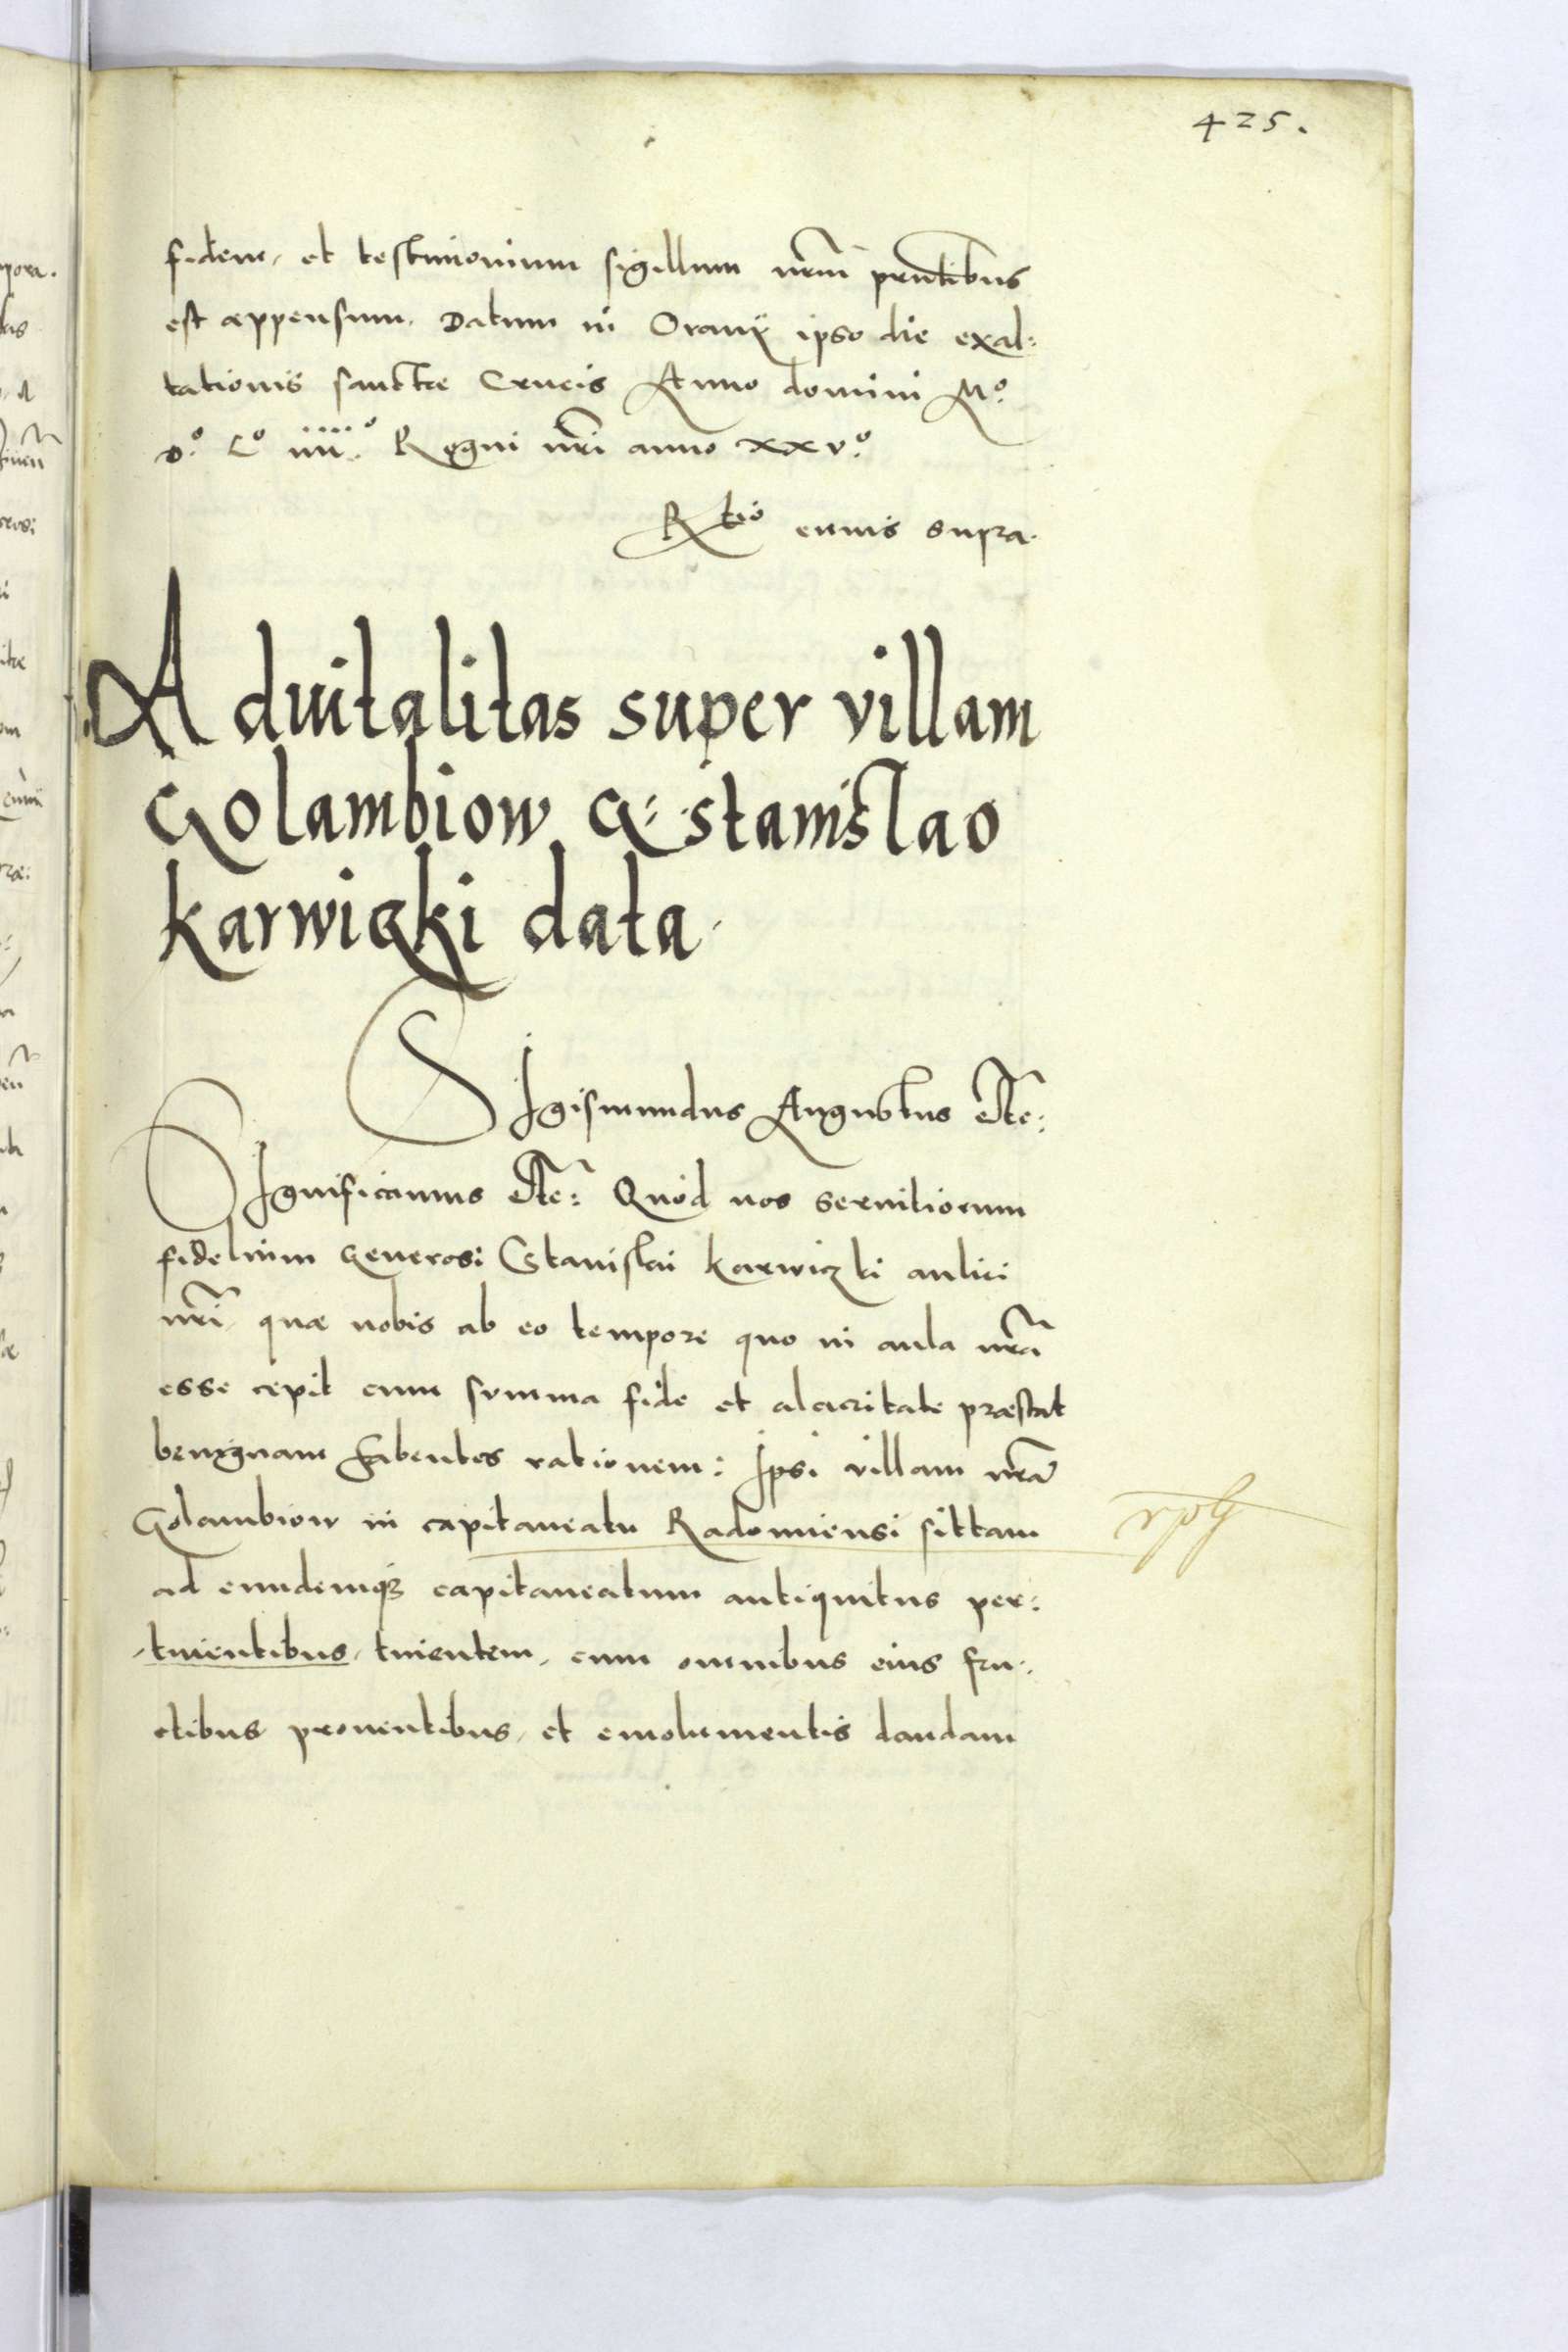 425.
fidem, et testimonium sigillum nrm̃ prñtibus
est appensum. Datum in Orany ipso die exal:
tationis sanctae Crucis Anno domini Mº.
Dº. Lº iiiiº. Regni nri̅ anno xxvº.
Rtio eiuus supra.
Advitalitas super villam
Golambiow G: Stanislao
Karwiczki data.
SIgismundus Augustus etc̃:
SIgnificamus etc̃: Quòd nos servitiorum
fidelium Generosi Stanislai Karwiczki aulici
nri̅, quae nobis ab eo tempore quo in aula nrã
esse cepit cum summa fide et alacritate praestat
benignam habentes rationem: Ipsi villam nrã
Golambiow in capitaneatu Radomiensi sittam
ad eundemqȝ capitaneatum antiquitus per:
tinentibus, tinentem, cum omnibus eius fru:
ctibus proventibus, et emolumentis dandam